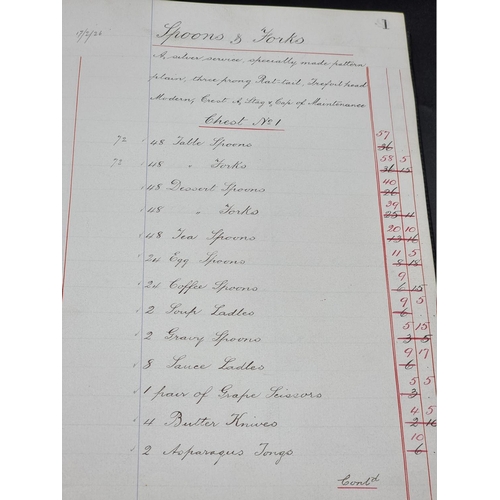 1
17/2/26
Spoons & Forks
A, silver service, specially made pattern
plain, three prong Rat-tail, Trefoil head
Modern, Crest A, Stag & Cap of Maintenance
Chest No 1
72 48 Table Spoons 57 36
72 48 " Forks 58 5 36 15
48 Dessert Spoons 40 26
48 " Forks 39 25 11
48 Tea Spoons 20 10 13 16
24 Egg Spoons 11 5 8 18
24 Coffee Spoons 9 6 15
2 Soup Ladles 9 5 6
2 Gravy Spoons 5 15 3 5
8 Sauce Ladles 9 17 6
1 pair of Grape Scissors 5 5 3
4 Butter Knives 4 5 2 16
2 Asparagus Tongs 10 6
Cont'd